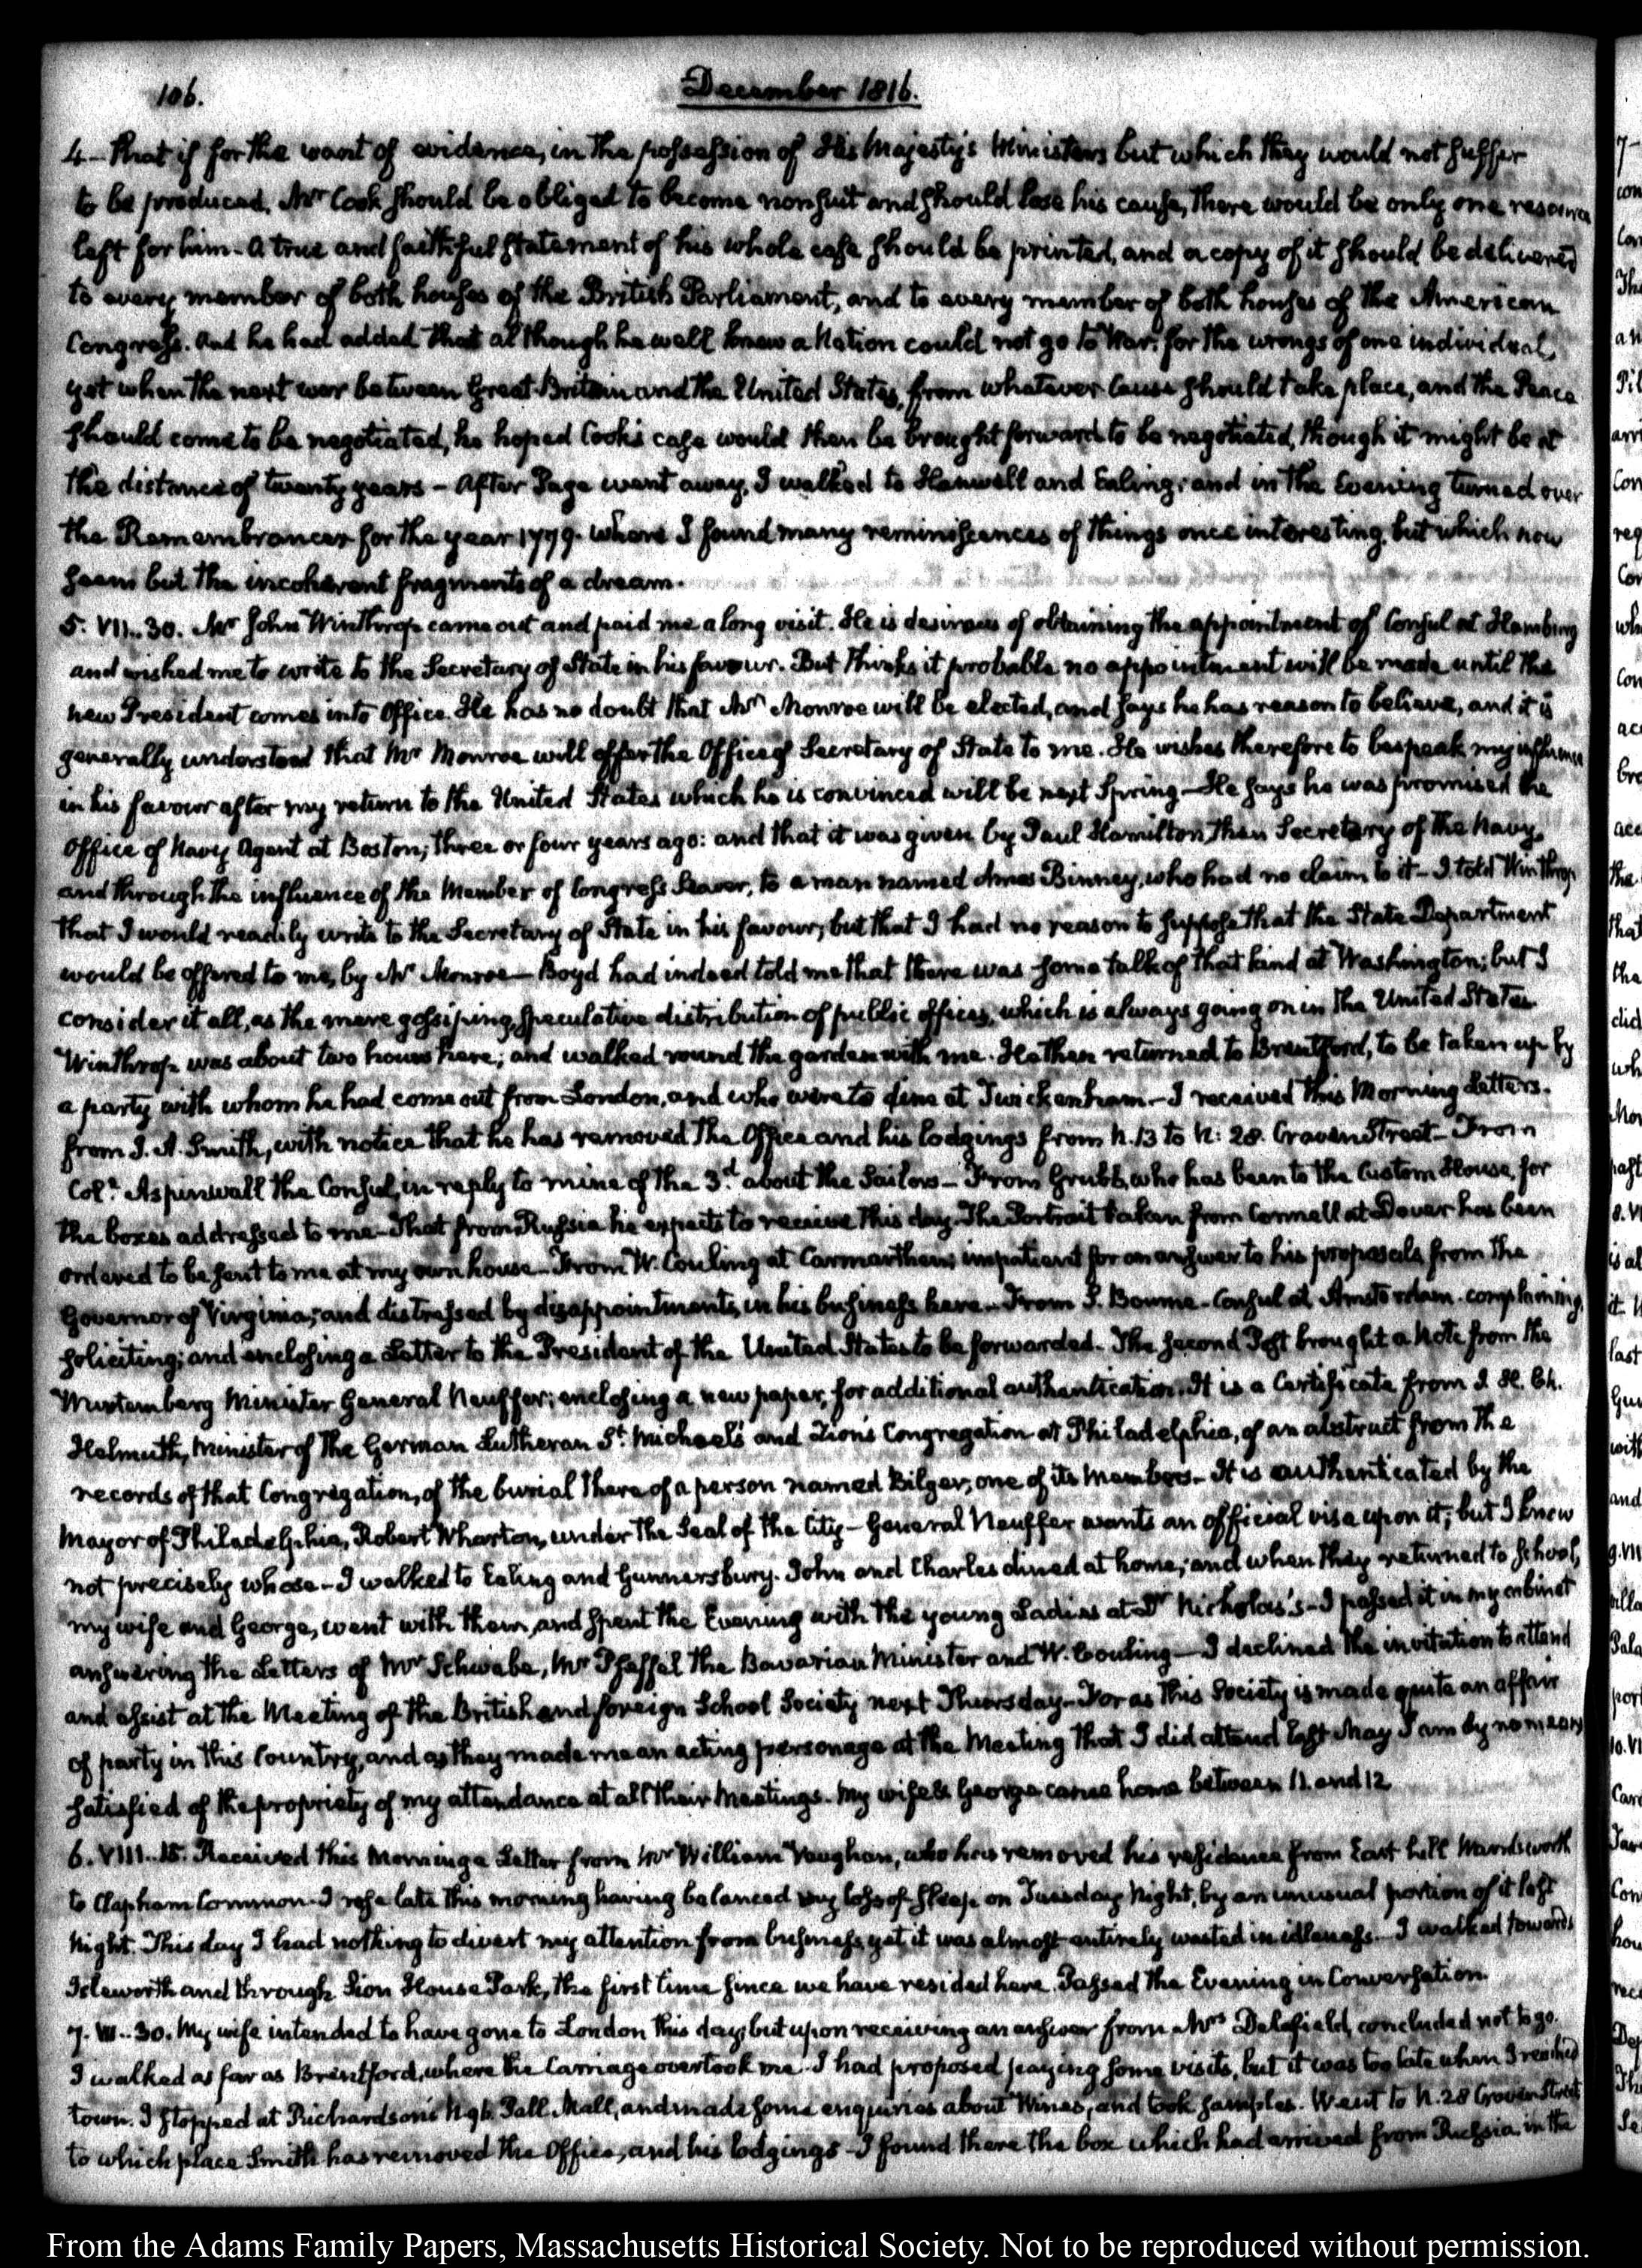 106.
December 1816.
4 — that if for the want of evidence, in the possession of His Majesty's Ministers but which they would not suffer
to be produced, Mr Cook should be obliged to become nonsuit and should lose his cause, there would be only one resource
left for him — A true and faithful statement of his whole case should be printed, and a copy of it should be delivered
to every member of both houses of the British Parliament, and to every member of both houses of the American
Congress. And he had added that although he well knew a Nation could not go to War for the wrongs of one individual,
yet when the next war between Great-Britain and the United States, from whatever cause should take place, and the Peace
should come to be negotiated, he hoped Cook's case would then be brought forward to be negotiated, though it might be at
the distance of twenty years — After Page went away, I walked to Hanwell and Ealing; and in the Evening turned over
the Remembrancer for the year 1779. where I found many reminiscences of things once interesting, but which now
seem but the incoherent fragments of a dream.
5. VII..30. Mr John Winthrop came out and paid me a long visit. He is desirous of obtaining the appointment of Consul at Hamburg
and wished me to write to the Secretary of State in his favour. But thinks it probable no appointment will be made until the
new President comes into Office. He has no doubt that Mr Monroe will be elected, and says he has reason to believe, and it is
generally understood that Mr Monroe will offer the Office of Secretary of State to me. He wishes therefore to bespeak my influence
in his favour after my return to the United States which he is convinced will be next Spring — He says he was promised the
Office of Navy Agent at Boston, three or four years ago: and that it was given by Paul Hamilton, then Secretary of the Navy,
and through the influence of the Member of Congress Seaver, to a man named Amos Binney, who had no claim to it — I told Winthrop
that I would readily write to the Secretary of State in his favour; but that I had no reason to suppose that the State Department
would be offered to me, by Mr Monroe — Boyd had indeed told me that there was some talk of that kind at Washington; but I
consider it all, as the mere gossiping, speculative distribution of public offices, which is always going on in the United States
Winthrop was about two hours here; and walked round the garden with me. He then returned to Brentford, to be taken up by
a party with whom he had come out from London, and who were to dine at Twickenham — I received this Morning Letters.
from J. A. Smith, with notice that he has removed the Office and his lodgings from N. 13 to N: 28. Craven Street — From
Col. Aspinwall the Consul, in reply to mine of the 3d about the Sailors — From Grubb, who has been to the Custom House, for
the boxes addressed to me — That from Russia he expects to receive this day. The Portrait taken from Connell at Dover has been
ordered to be sent to me at my own house — From W. Couling at Carmarthen; impatient for an answer to his proposals from the
Governor of Virginia; and distressed by disappointments, in his business here — From S. Bourne — Consul at Amsterdam — complaining,
soliciting; and enclosing a Letter to the President of the United States to be forwarded. The second Post brought a Note from the
Wurtemberg Minister General Neuffer; enclosing a new paper, for additional authentication. It is a Certificate from J. H. Ch.
Helmuth, Minister of the German Lutheran St. Michael's and Zion's Congregation at Philadelphia, of an abstract from the
records of that Congregation, of the burial there of a person named Bilger, one of its Members — It is authenticated by the
Mayor of Philadelphia, Robert Wharton, under the Seal of the City — General Neuffer wants an official visa upon it; but I know
not precisely whose — I walked to Ealing and Gunnersbury. John and Charles dined at home; and when they returned to School,
my wife and George, went with them, and spent the Evening with the young Ladies at Dr Nicholas's — I passed it in my cabinet
answering the Letters of Mr Schwabe, Mr Pfeffel the Bavarian Minister and W. Couling — I declined the invitation to attend
and assist at the Meeting of the British and foreign School Society next Thursday — For as this Society is made quite an affair
of party in this Country, and as they made me an acting personage at the Meeting that I did attend last May I am by no means
satisfied of the propriety of my attendance at all their Meetings. My wife & George came home between 11. and 12
6. VIII..15. Received this Morning a Letter from Mr William Vaughan, who has removed his residence from East hill Wandsworth
to Clapham Common. I rose late this morning having balanced my loss of sleep on Tuesday Night, by an unusual portion of it last
Night. This day I had nothing to divert my attention from business, yet it was almost entirely wasted in idleness. I walked towards
Isleworth and through Sion House Park, the first time since we have resided here. Passed the Evening in Conversation.
7. VII..30. My wife intended to have gone to London this day; but upon receiving an answer from Mrs Delafield, concluded not to go.
I walked as far as Brentford, where the Carriage overtook me. I had proposed paying some visits, but it was too late when I reached
town. I stopped at Richardson's N 96. Pall Mall, and made some enquiries about Wines, and took samples. Went to N. 28 Craven Street
to which place Smith has removed the Office, and his lodgings — I found there the box which had arrived from Russia in the
From the Adams Family Papers, Massachusetts Historical Society. Not to be reproduced without permission.